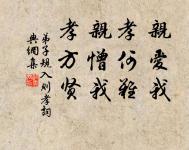 親愛我
孝何難
親憎我
孝方贤
弟子規入则孝詞
典網集